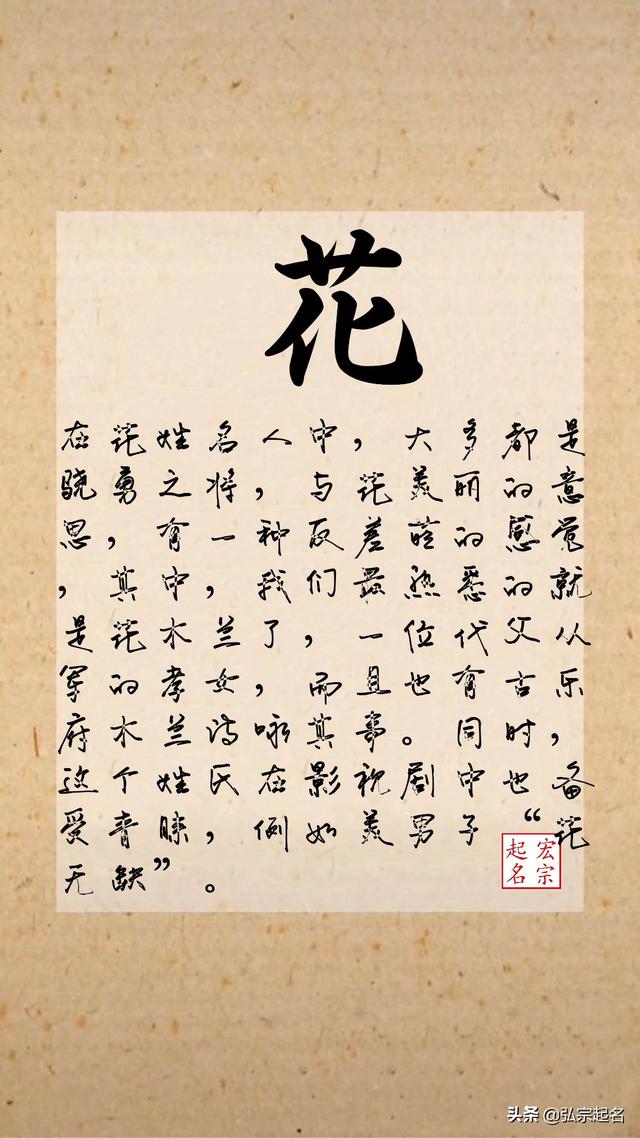 花
在花姓名人中，大多都是
骁勇之将，与花美丽的意
思，有一种反差萌的感觉
，其中，我们最熟悉的就
是花木兰了，一位代父从
军的孝女，而且也有古乐
府木兰诗咏其事。同时，
这个姓氏在影视剧中也备
受青睐，例如美男子“花
无缺”。
宏宗
起名
头条 @弘宗起名